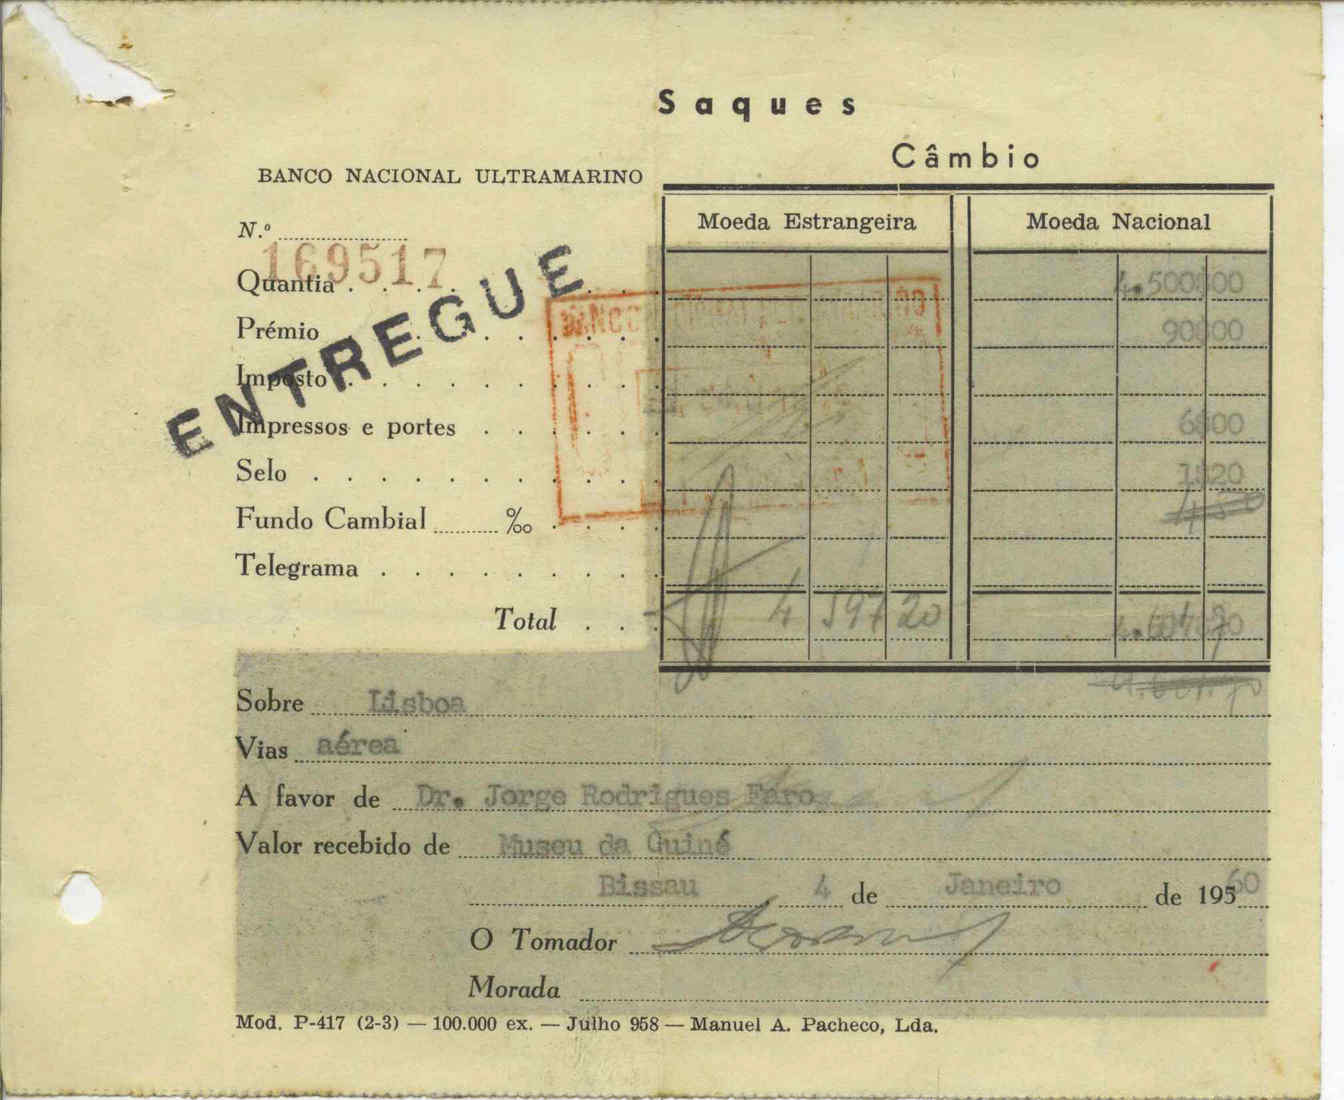 Saques
Câmbio
BANCO NACIONAL ULTRAMARINO
Moeda Estrangeira Moeda Nacional
N.º 169517
ENTREGUE
Quantia 4.500$00
Prémio 90$00
Imposto
Impressos e portes 6$00
Selo 1$20
Fundo Cambial ‰
Telegrama
Total 4 597 20
Sobre Lisboa
Vias aérea
A favor de Dr. Jorge Rodrigues Faro
Valor recebido de Museu da Guiné
Bissau 4 de Janeiro de 19560
O Tomador
Morada
Mod. P-417 (2-3) — 100.000 ex. — Julho 958 — Manuel A. Pacheco, Lda.